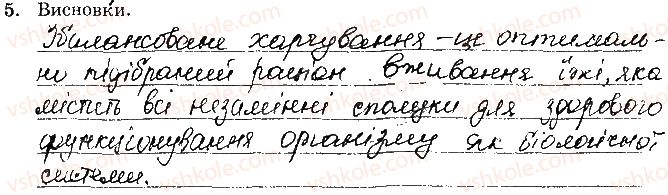 5. Висновки.
Билансоване харчування - це оптималь-
но підібраний раціон вживання їжі, яка
містить всі незамінні сполуки для здорового
функціонування організму як біологічної
системи.